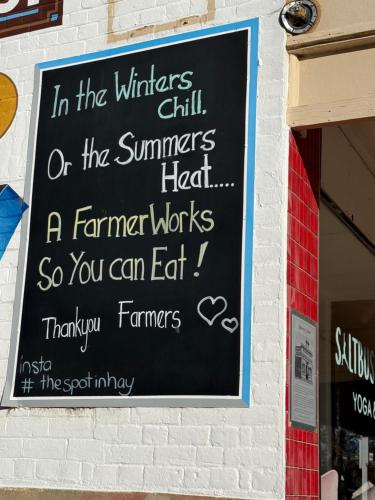 In the Winters
Chill,
Or the Summers
Heat.....
A FarmerWorks
So You can Eat!
Thankyou Farmers
insta
# thespotinhay
SALTBUS
YOGA &